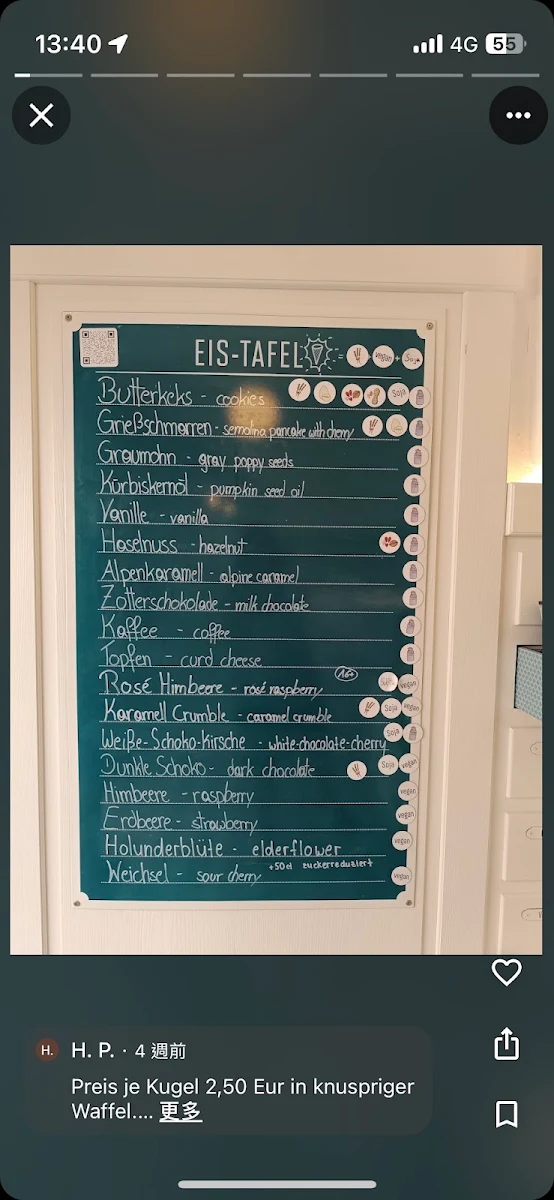 13:40
4G 55
EIS-TAFEL = vegan + Soja
Butterkeks - cookies Soja
Grießschmarren - semolina pancake with cherry
Graumohn - gray poppy seeds
Kürbiskernöl - pumpkin seed oil
Vanille - vanilla
Haselnuss - hazelnut
Alpenkaramell - alpine caramel
Zotterschokolade - milk chocolate
Kaffee - coffee
Topfen - curd cheese
16+
Rosé Himbeere - rosé raspberry vegan
Karamell Crumble - caramel crumble Soja vegan
Weiße-Schoko-Kirsche - white-chocolate-cherry Soja
Dunkle Schoko - dark chocolate Soja vegan
Himbeere - raspberry vegan
Erdbeere - strawberry vegan
Holunderblüte - elderflower vegan
zuckerreduziert
Weichsel - sour cherry vegan
H. H. P. · 4 週前
Preis je Kugel 2,50 Eur in knuspriger
Waffel.... 更多